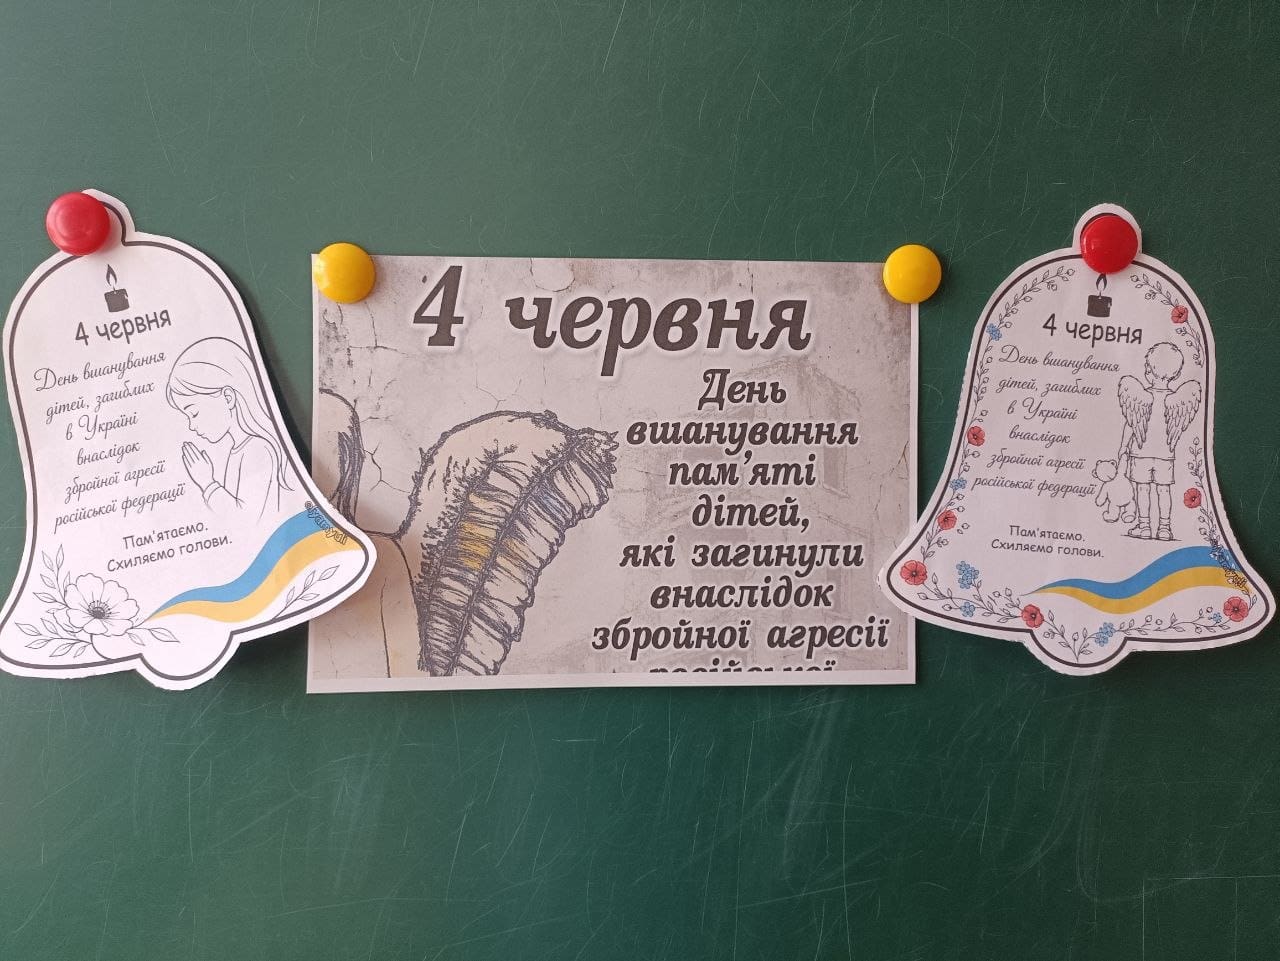 4 червня
День вшанування
дітей, загиблих
в Україні
внаслідок
збройної агресії
російської федерації
Пам'ятаємо.
Схиляємо голови.
4 червня
День
вшанування
пам’яті
дітей,
які загинули
внаслідок
збройної агресії
російської
4 червня
День вшанування
дітей, загиблих
в Україні
внаслідок
збройної агресії
російської федерації
Пам'ятаємо.
Схиляємо голови.